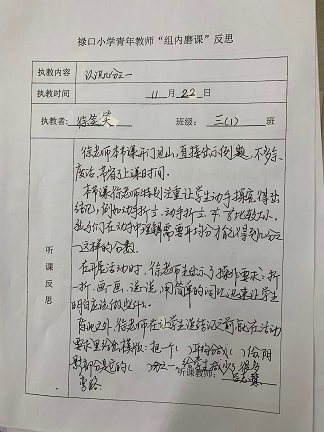 禄口小学青年教师“组内磨课”反思
执教内容 认识几分之一
执教时间 11 月 22 日
执教者: 徐 笑 班级: 三(1) 班
听课反思
徐老师本节课开门见山,直接出示例题,不多余
废话,节省了上课时间。
本节课徐老师特别注重让学生动手探究得出
结论,例如动手折一、动手折一、 比较大小,
孩子们在动手中理解需要平均分才能得到几分之一
这样的分数。
在开展活动时,徐老师先出示了操作要求:折一
折、画一画、说一说,用简单的词汇 让学生
明白应该做些什么。
除此之外,徐老师在让学生说结论之前就在活动
要求里给出模板:把一个( )平均分成( )份,阴
影部分是它的( )分之一,给学生减少了很多
弯路。
听课教师: